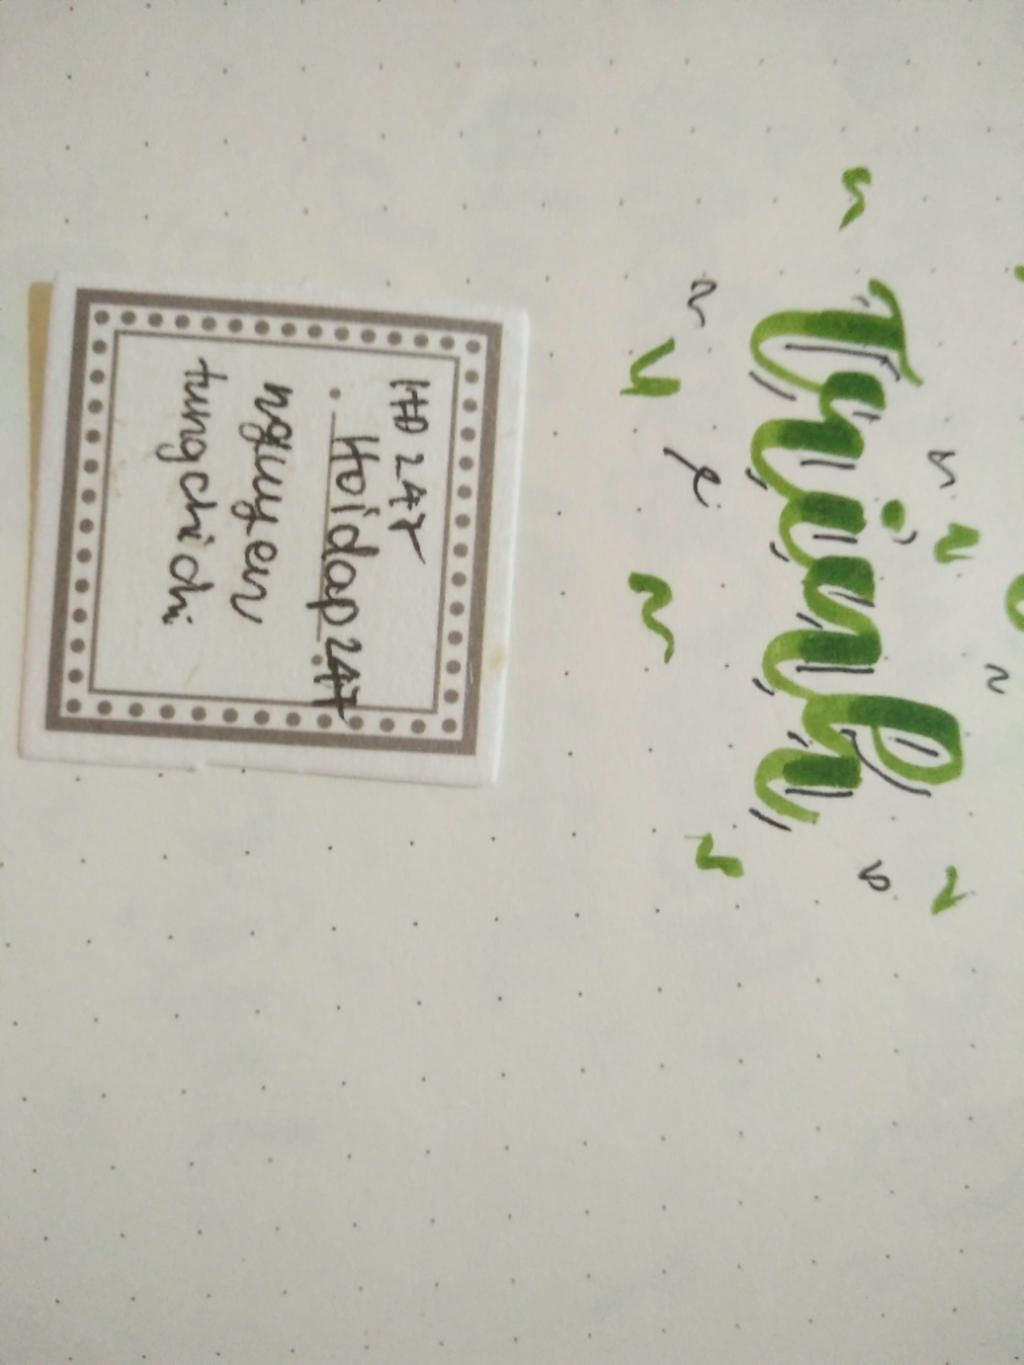 Trinh
HĐ 247
Hoidap247
nguyen
tungchichi